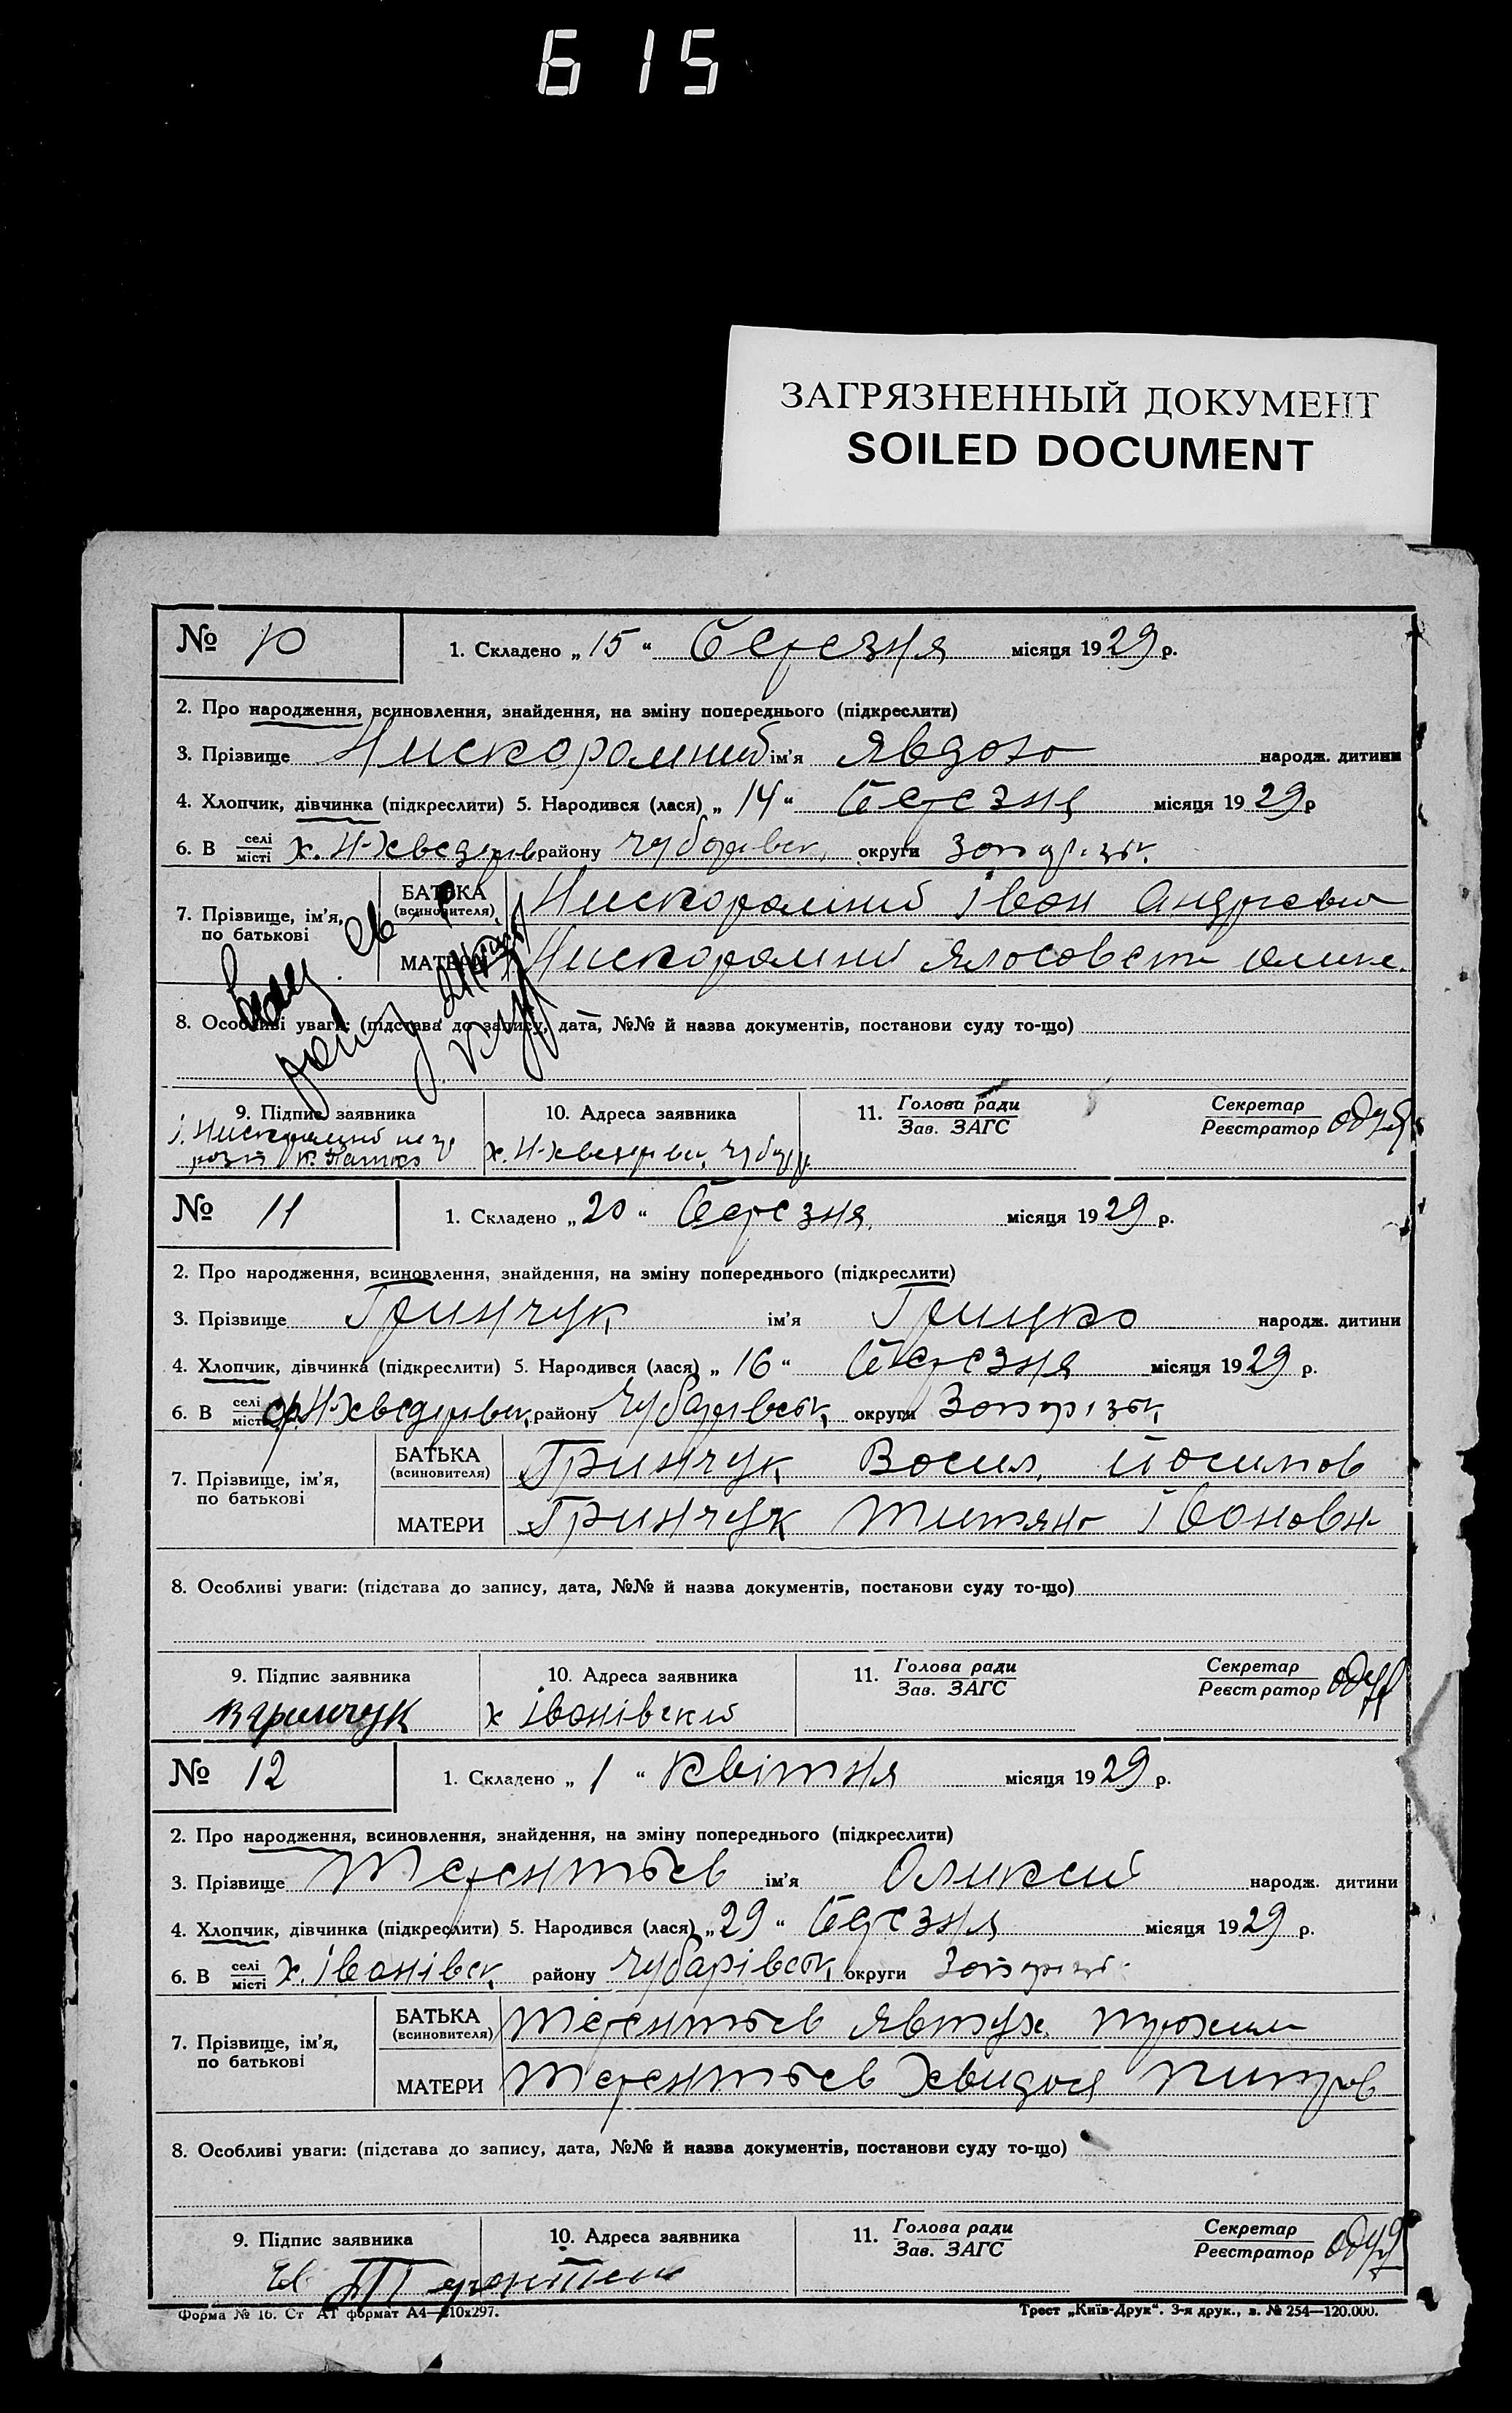 615
ЗАГРЯЗНЕННЫЙ ДОКУМЕНТ
SOILED DOCUMENT
№ 10 1. Складено „ 15 “ березня місяця 1929 р.
2. Про народження, всиновлення, знайдення, на зміну попереднього (підкреслити)
3. Прізвище Нискоромний ім'я Явдохо народж. дитини
4. Хлопчик, дівчинка (підкреслити) 5. Народився (лася) „ 14 “ березня місяця 1929 р
6. В селі/місті х. Н-Хведорів району Чубарівск, округи Запорізьк.
7. Прізвище, ім'я, по батькові
БАТЬКА (всиновителя) Нискоромний Іван Андрієвич
МАТЕРИ Нискоромний
8. Особливі уваги: (підстава до запису, дата, №№ й назва документів, постанови суду то-що)
9. Підпис заявника 10. Адреса заявника 11. Голова ради/Зав. ЗАГС Секретар/Реєстратор
№ 11 1. Складено „ 20 “ березня місяця 1929 р.
2. Про народження, всиновлення, знайдення, на зміну попереднього (підкреслити)
3. Прізвище Гринчук ім'я Грицко народж. дитини
4. Хлопчик, дівчинка (підкреслити) 5. Народився (лася) „ 16 “ березня місяця 1929 р.
6. В селі/місті Н-Хведорівск, району Чубарівськ, округи Запорізьк
7. Прізвище, ім'я, по батькові
БАТЬКА (всиновителя) Гринчук Васил. Йосипов
МАТЕРИ Гринчук Титяна Івановн
8. Особливі уваги: (підстава до запису, дата, №№ й назва документів, постанови суду то-що)
9. Підпис заявника 10. Адреса заявника 11. Голова ради/Зав. ЗАГС Секретар/Реєстратор
В Гринчук х Іванівский
№ 12 1. Складено „ 1 “ Квітня місяця 1929 р.
2. Про народження, всиновлення, знайдення, на зміну попереднього (підкреслити)
3. Прізвище Терентьєв ім'я Оликсій народж. дитини
4. Хлопчик, дівчинка (підкреслити) 5. Народився (лася) „ 29 “ березня місяця 1929 р.
6. В селі/місті х. Іванівск району Чубарівськ, округи
7. Прізвище, ім'я, по батькові
БАТЬКА (всиновителя) Терентьєв Явтух.
МАТЕРИ Терентьєв Хвидося Питров
8. Особливі уваги: (підстава до запису, дата, №№ й назва документів, постанови суду то-що)
9. Підпис заявника 10. Адреса заявника 11. Голова ради/Зав. ЗАГС Секретар/Реєстратор
Форма № 16. Ст АТ формат А4—210x297. Трест „Київ-Друк“. 3-я друк., з. № 254—120.000.